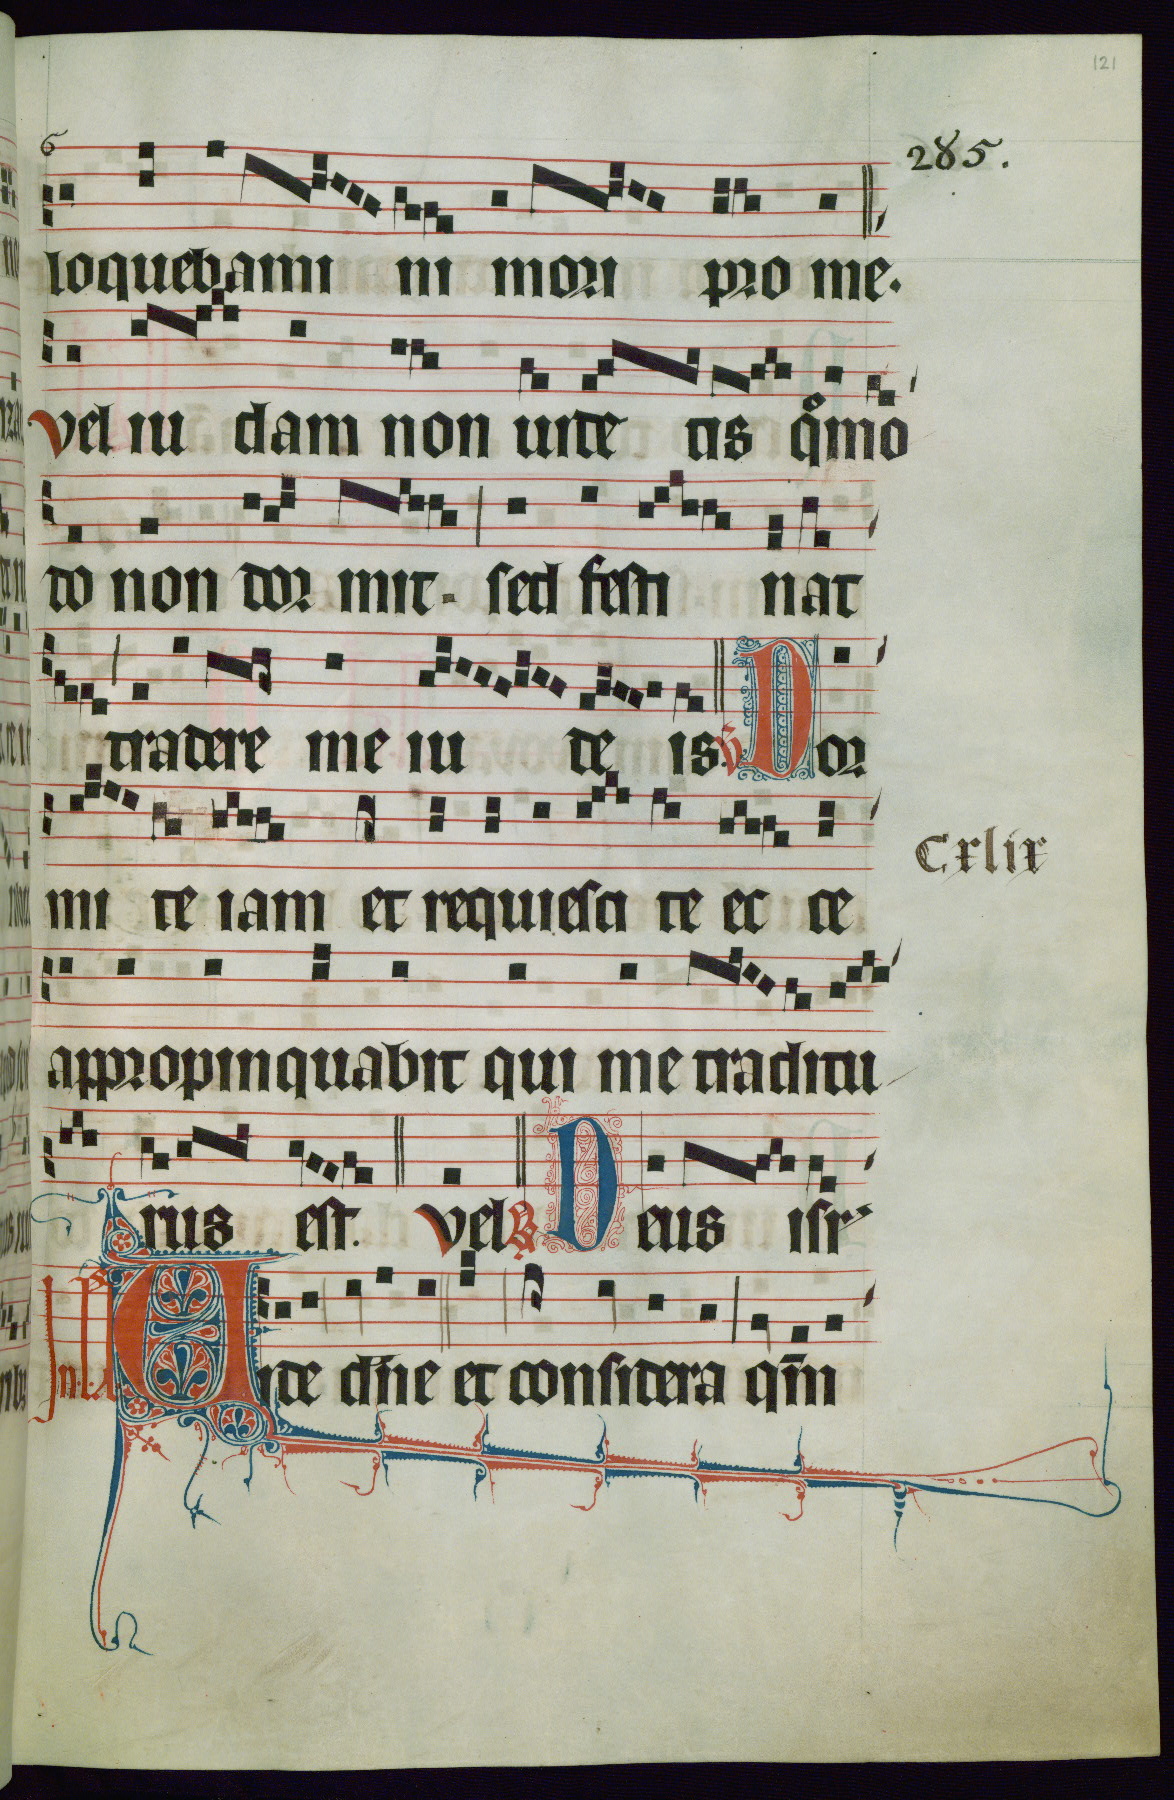 121
285.
loquebami ni mori pro me.
vel iu dam non uite tis qͦmo
to non dor mit. sed festi nat
tradere me iu de is. ℣ Dor
mi te iam et requiesci te ec ce
Cxlix
appropinquabit qui me traditu
rus est. vel ℟ Deus isr
In. l. a Uide dn̄e et considera qm̄